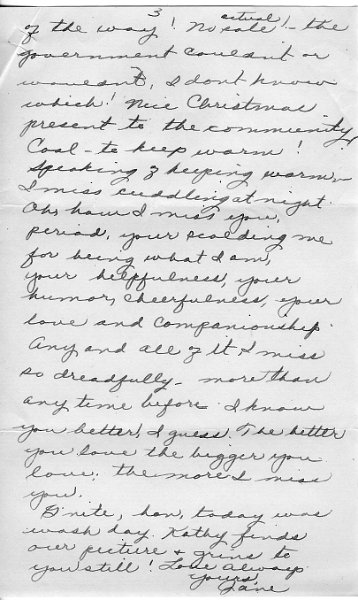 3
of the way! No sale actual! - the
government couldn't or
wouldn't, I don't know
which! Nice Christmas
present to the community
Coal - to keep warm!
Speaking of keeping warm -
I miss cuddling at night.
Oh, how I miss you,
period, your scolding me
for being what I am,
your helpfulness, your
humor, cheerfulness, your
love and companionship.
Any and all of it I miss
so dreadfully - more than
any time before. I know
you better, I guess. The better
you love the bigger you
love, the more I miss
you.
G'nite, hon, today was
wash day. Kathy finds
our picture + grins to
you still! Love always
yours,
Jane